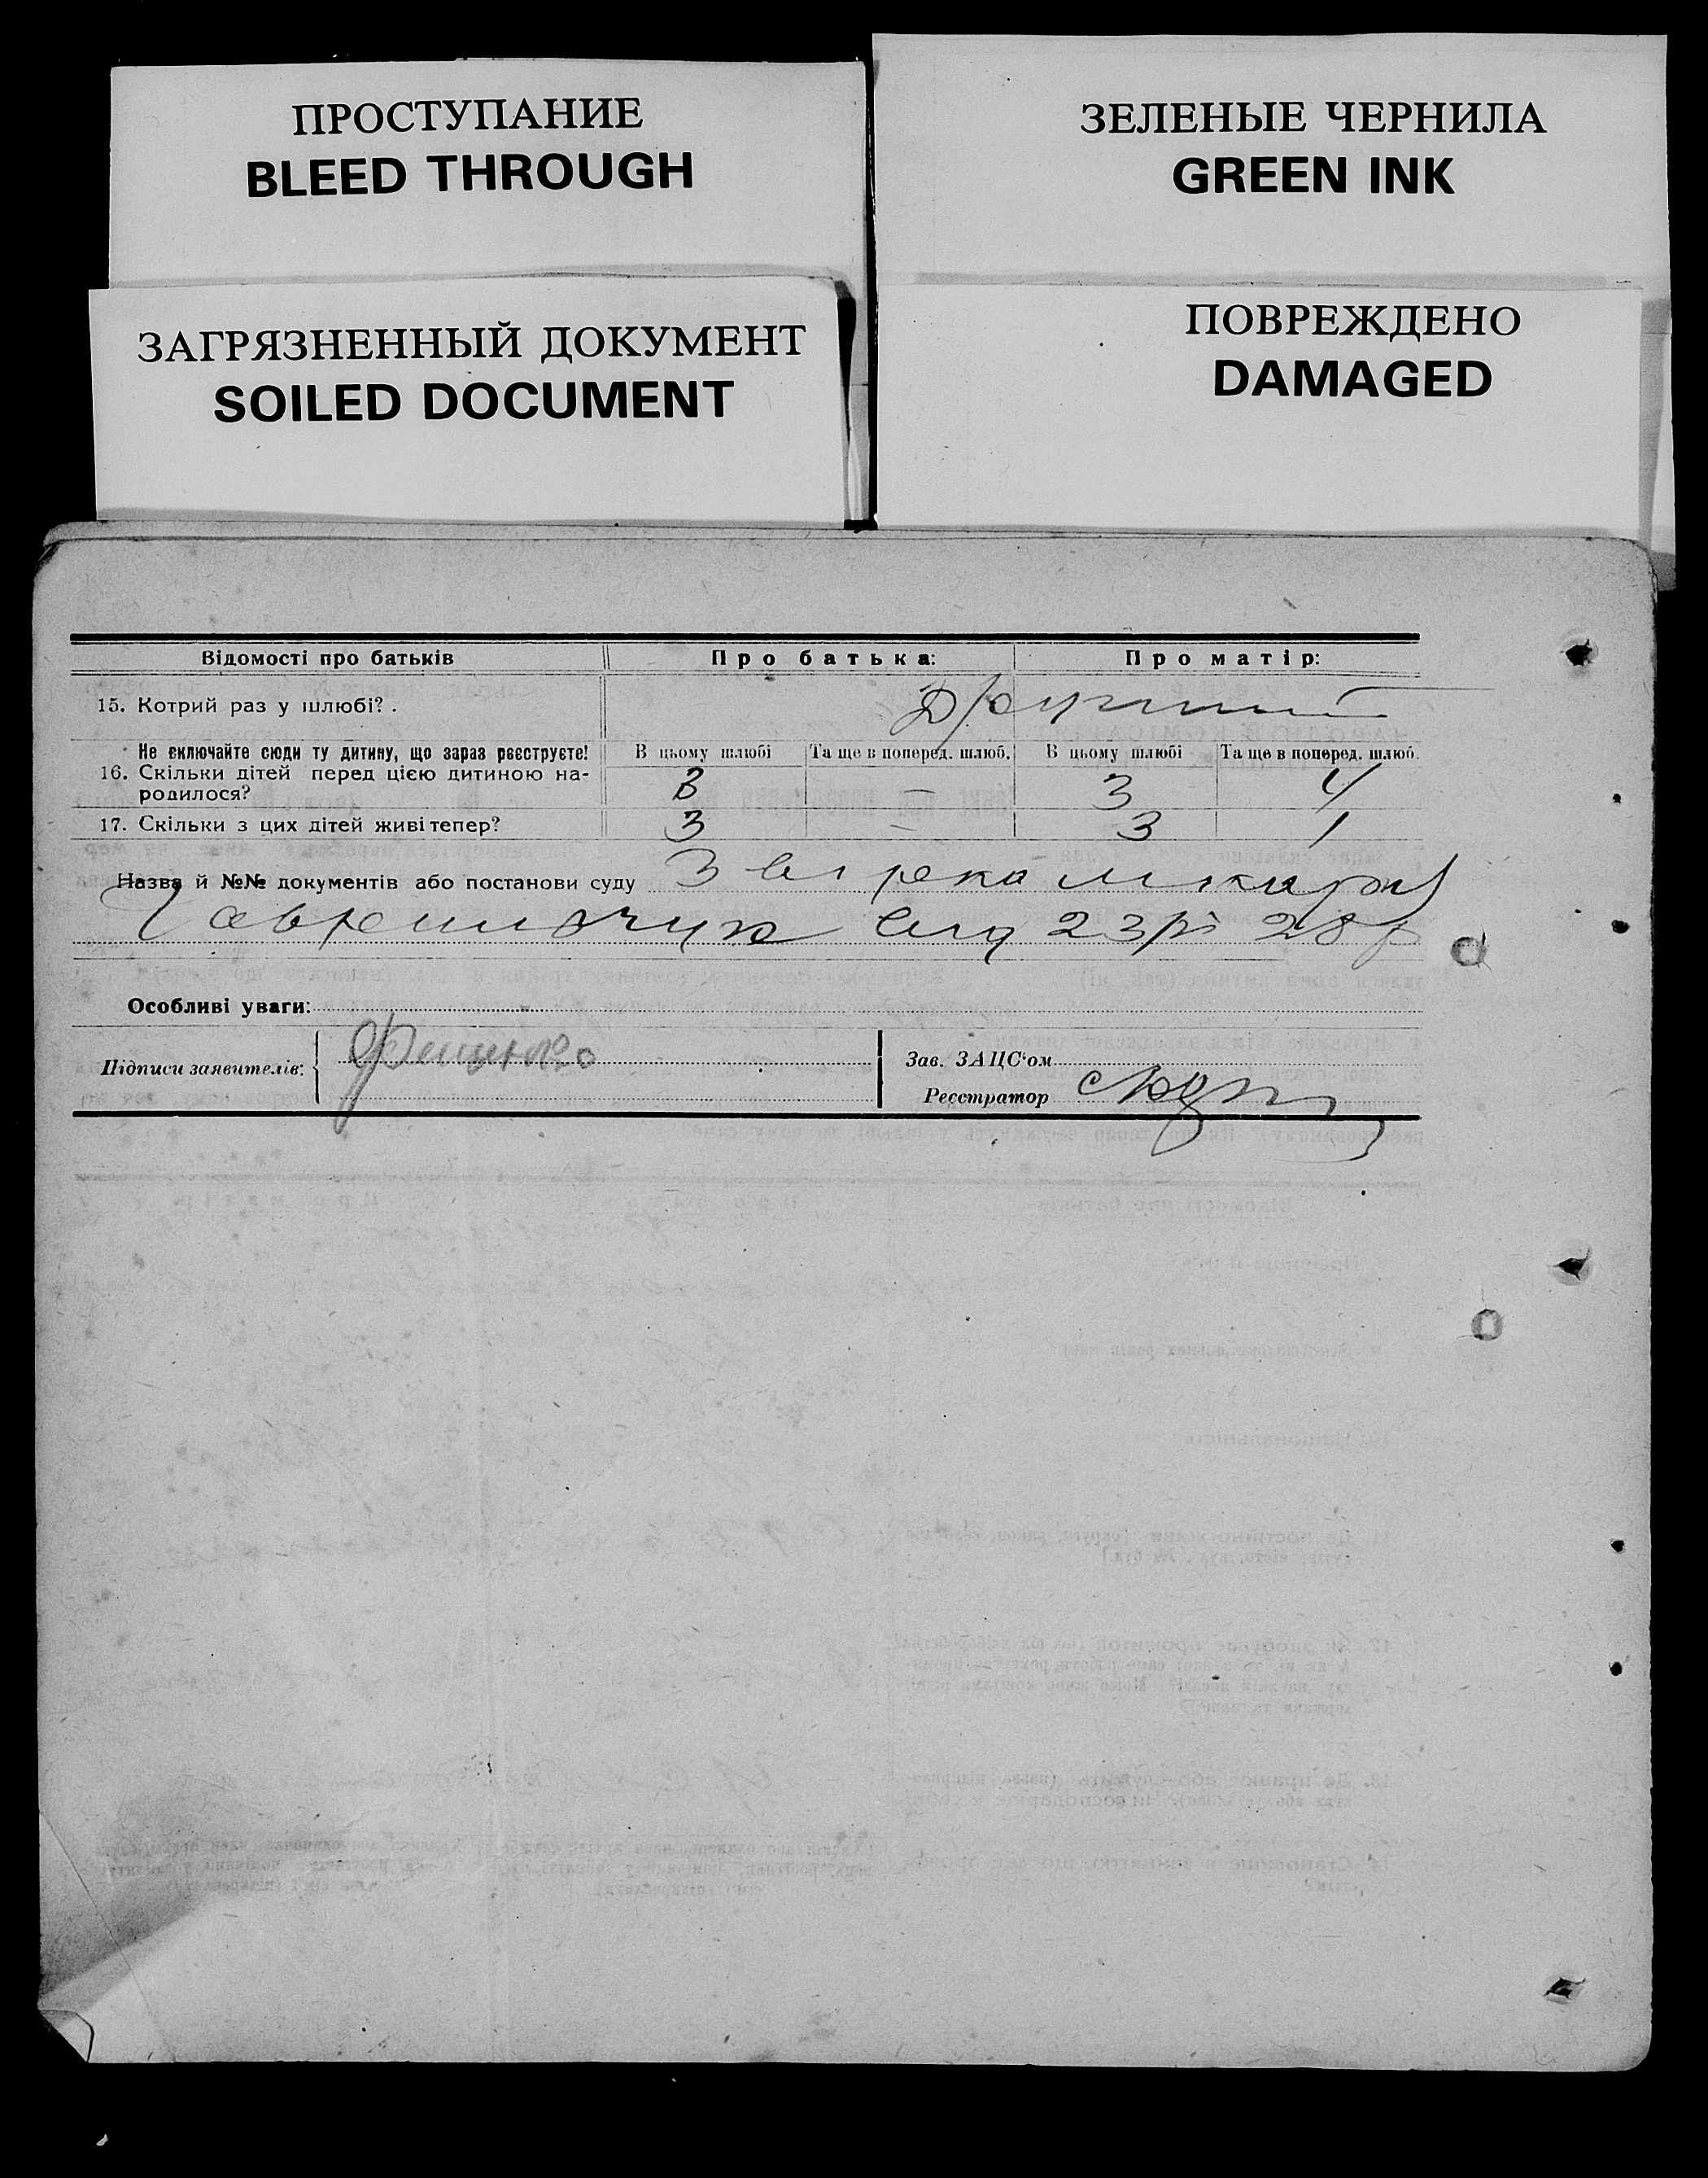 ПРОСТУПАНИЕ
BLEED THROUGH
ЗЕЛЕНЫЕ ЧЕРНИЛА
GREEN INK
ЗАГРЯЗНЕННЫЙ ДОКУМЕНТ
SOILED DOCUMENT
ПОВРЕЖДЕНО
DAMAGED
Відомості про батьків Про батька: Про матір:
15. Котрий раз у шлюбі? .
Не включайте сюди ту дитину, що зараз реєструєте! В цьому шлюбі Та ще в поперед. шлюб. В цьому шлюбі Та ще в поперед. шлюб.
16. Скільки дітей перед цією дитиною на-
родилося? 3 — 3 4
17. Скільки з цих дітей живі тепер? 3 — 3 1
Назва й №№ документів або постанови суду
23
Особливі уваги:
Підписи заявителів:
Зав. ЗАЦС'ом
Реєстратор